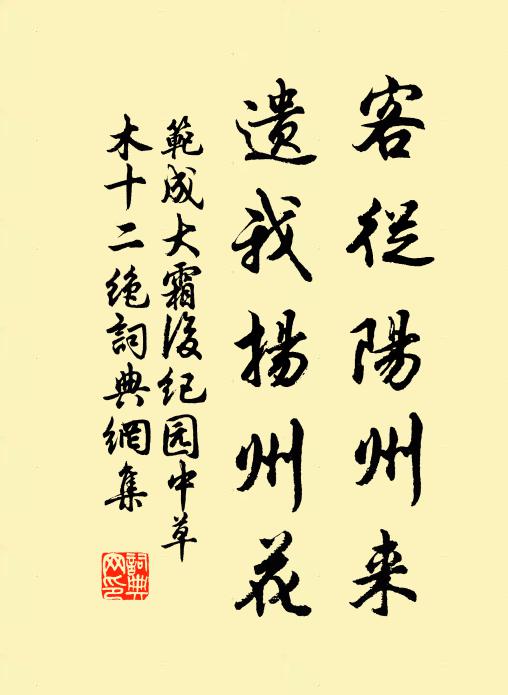 客從陽州来
遺我揚州花
範成大霜後纪园中草
木十二绝詞典網集
詞典网印